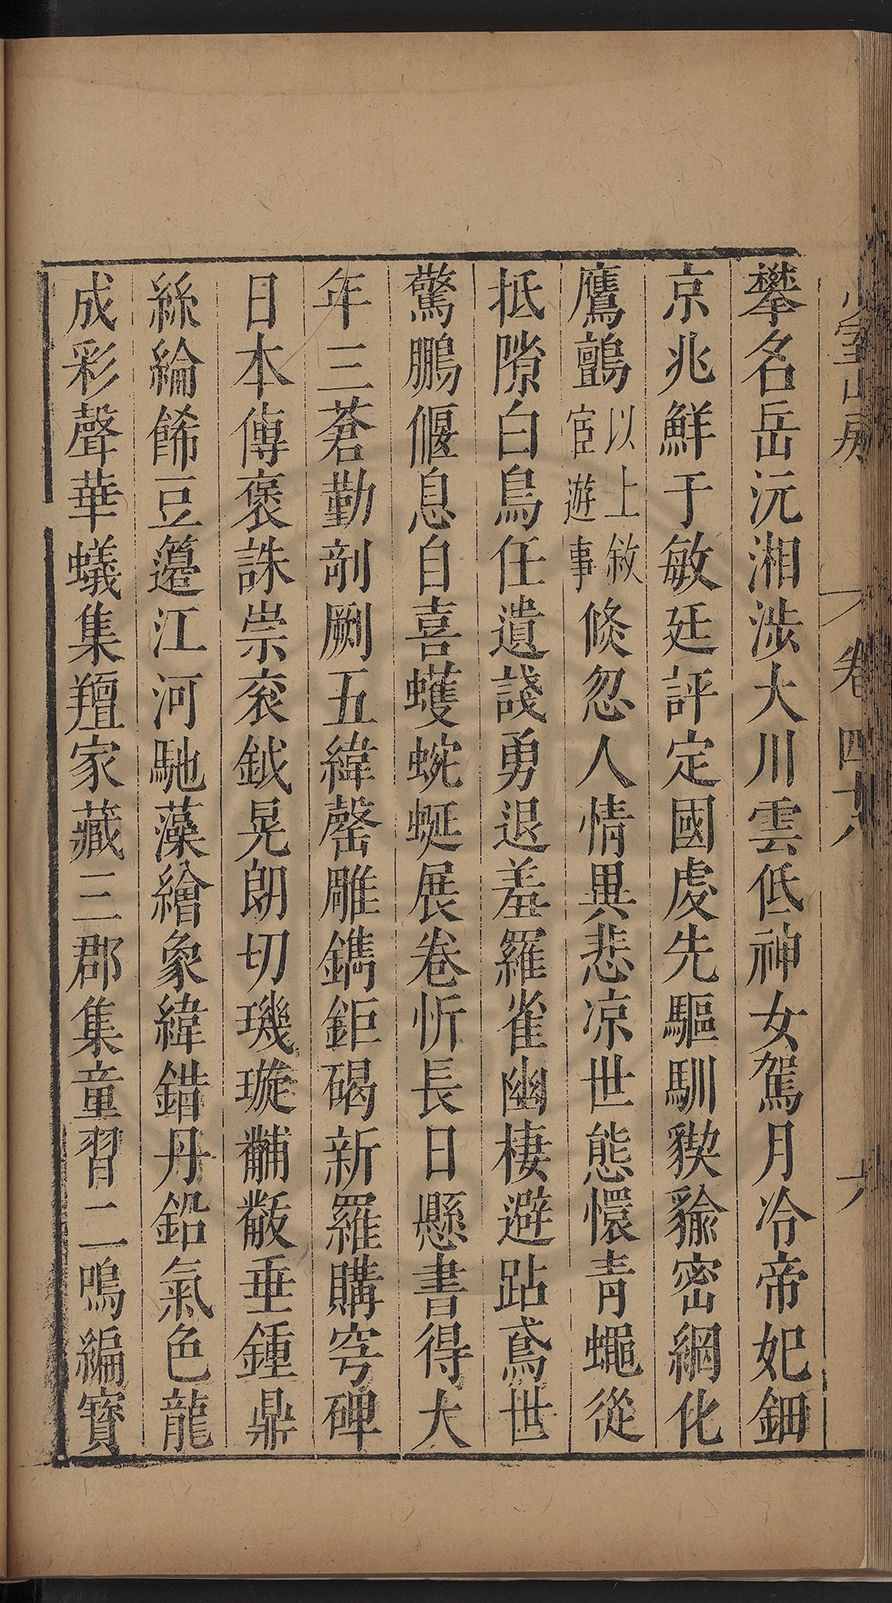 室山房
卷四十八
六
攀名岳沅湘涉大川雲低神女駕月冷帝妃鈿
京兆鮮于敏廷評定國虔先驅馴猰貐密網化
鷹鸇以上敘宦遊事倐忽人情異悲凉世態懷青蠅從
抵隙白鳥任遺諓勇退羞羅雀幽棲避跕鳶世
驚鵬偃息自喜蠖蜿蜒展卷忻長日懸書得大
年三蒼勤剞劂五緯罄雕鐫鉅碣新羅購穹碑
日本傳褒誅崇衮鉞晃朗切璣璇黼黻垂鍾鼎
絲綸餙豆籩江河馳藻繪象緯錯丹鉛氣色龍
成彩聲華蟻集羶家藏三郡集童習二鳴編寳